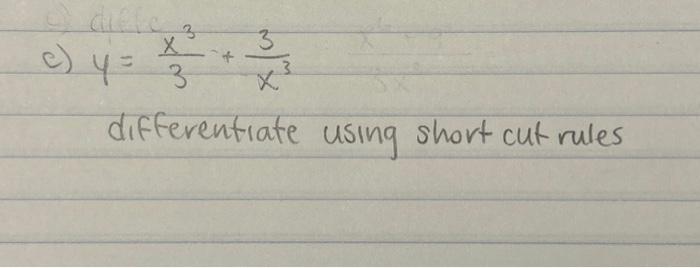 c) y = x³/3 + 3/x³
differentiate using short cut rules